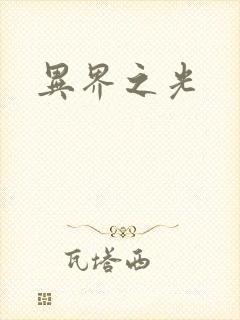 異界之光
瓦塔西